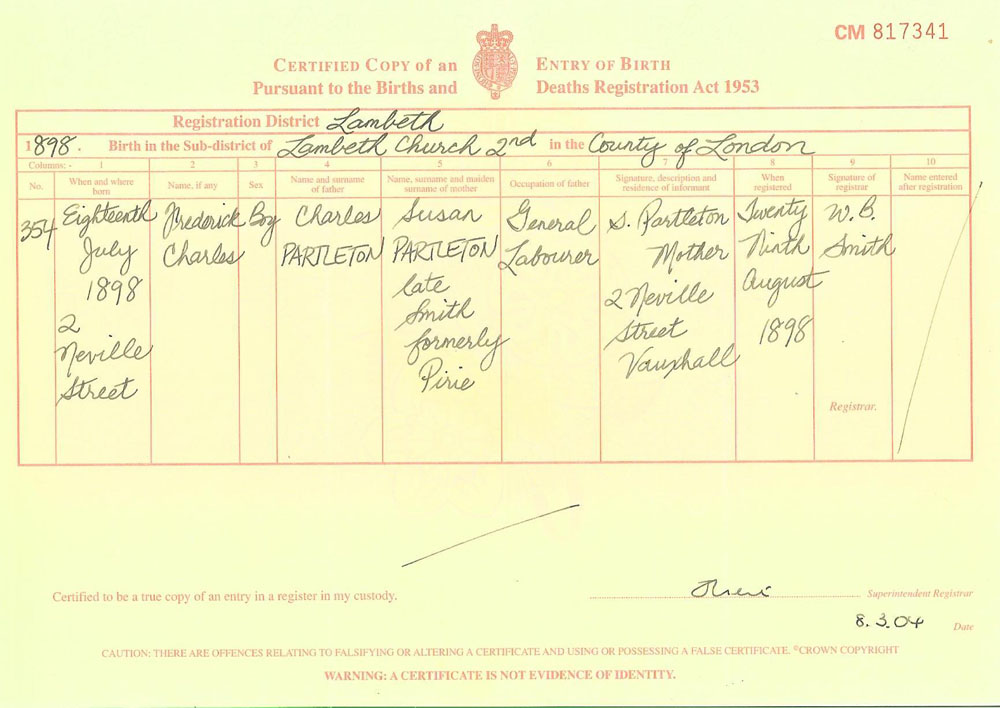 CM 817341
CERTIFIED COPY OF AN ENTRY OF BIRTH
Pursuant to the Births and Deaths Registration Act 1953
Registration District Lambeth
1898. Birth in the Sub-district of Lambeth Church 2nd in the County of London
Columns: - 1 2 3 4 5 6 7 8 9 10
No.
When and where
born
Name, if any
Sex
Name and surname
of father
Name, surname and maiden
surname of mother
Occupation of father
Signature, description and
residence of informant
When
registered
Signature of
registrar
Name entered
after registration
354
Eighteenth
July
1898
2
Neville
Street
Frederick
Charles
Boy
Charles
PARTLETON
Susan
PARTLETON
late
Smith
formerly
Pirie
General
Labourer
S. Partleton
Mother
2 Neville
Street
Vauxhall
Twenty
Ninth
August
1898
W.B.
Smith
Registrar.
Certified to be a true copy of an entry in a register in my custody.
Superintendent Registrar
8.3.04 Date
CAUTION: THERE ARE OFFENCES RELATING TO FALSIFYING OR ALTERING A CERTIFICATE AND USING OR POSSESSING A FALSE CERTIFICATE. ©CROWN COPYRIGHT
WARNING: A CERTIFICATE IS NOT EVIDENCE OF IDENTITY.